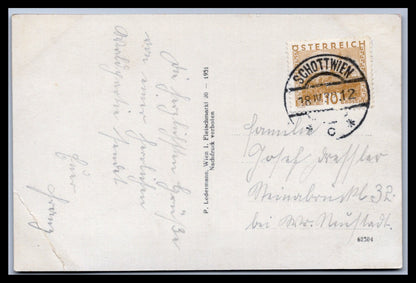 Die herzlichsten Grüße
von einer herrlichen
Waldpartie sendet
Euer
Franz
P. Ledermann, Wien I. Fleischmarkt 20 — 1931
Nachdruck verboten
ÖSTERREICH
SCHOTTWIEN
18.IV. 12
10
* C *
Familie
Josef Dressler
Steinabruckl 32
bei Wr. Neustadt.
62584